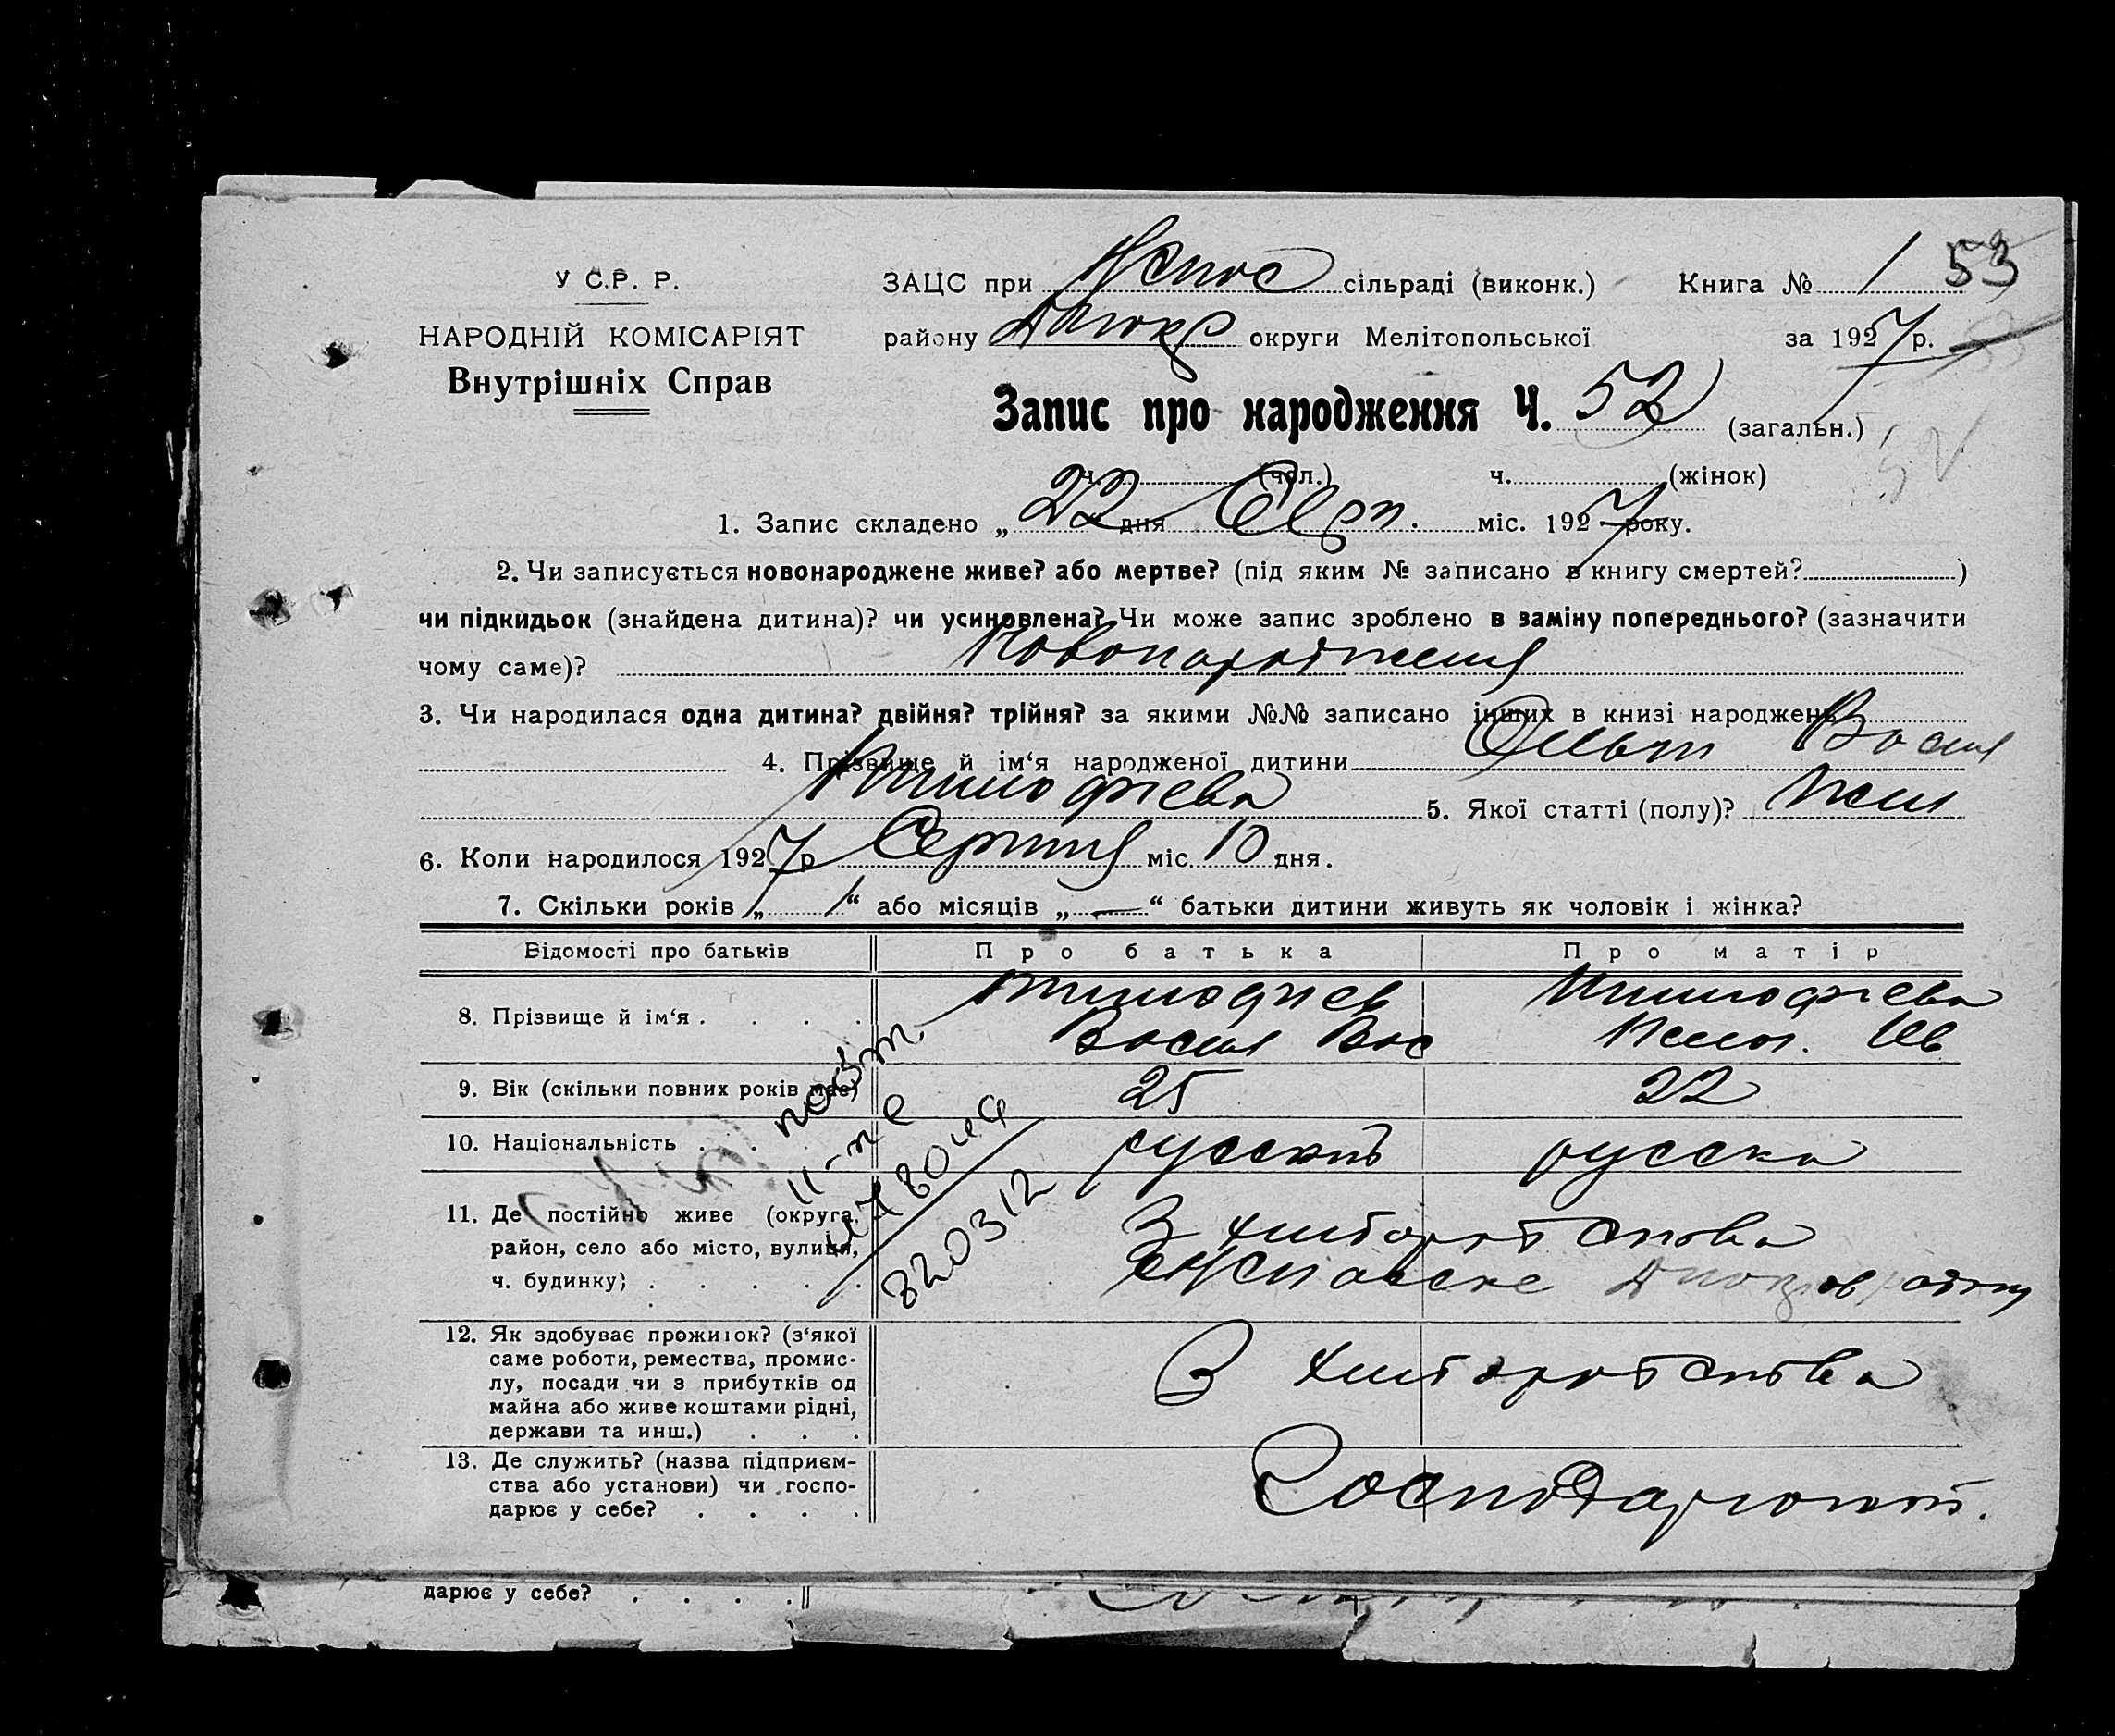 У С.Р. Р.
НАРОДНІЙ КОМІСАРІЯТ
Внутрішніх Справ
ЗАЦС при сільраді (виконк.) Книга № 1 53
району округи Мелітопольської за 1927 р.
Запис про народження Ч. 52 (загальн.)
52
ч. (чол.) ч. (жінок)
1. Запис складено „ 22 “ дня Серп. міс. 1927 року.
2. Чи записується новонароджене живе? або мертве? (під яким № записано в книгу смертей? )
чи підкидьок (знайдена дитина)? чи усиновлена? Чи може запис зроблено в заміну попереднього? (зазначити
чому саме)?
3. Чи народилася одна дитина? двійня? трійня? за якими №№ записано інших в книзі народжень
4. Прізвище й ім‘я народженої дитини
Тимофієва 5. Якої статті (полу)? Жін
6. Коли народилося 1927 р Серпня міс. 10 дня.
7. Скільки років „ 1 “ або місяців „ — “ батьки дитини живуть як чоловік і жінка?
Відомості про батьків Про батька Про матір
8. Прізвище й ім‘я . . . . . Тимофієв Тимофієва
Васил Вас
9. Вік (скільки повних років має) 25 22
10. Національність . . . русский русска
11. Де постійно живе (округа,
район, село або місто, вулиця,
ч. будинку) . . . . .
12. Як здобуває прожиток? (з‘якої
саме роботи, ремества, промис-
лу, посади чи з прибутків од
майна або живе коштами рідні,
держави та инш.) . . .
З хліборобства
13. Де служить? (назва підприєм-
ства або установи) чи госпо-
дарює у себе? . . . .
820312
дарює у себе? . . . .